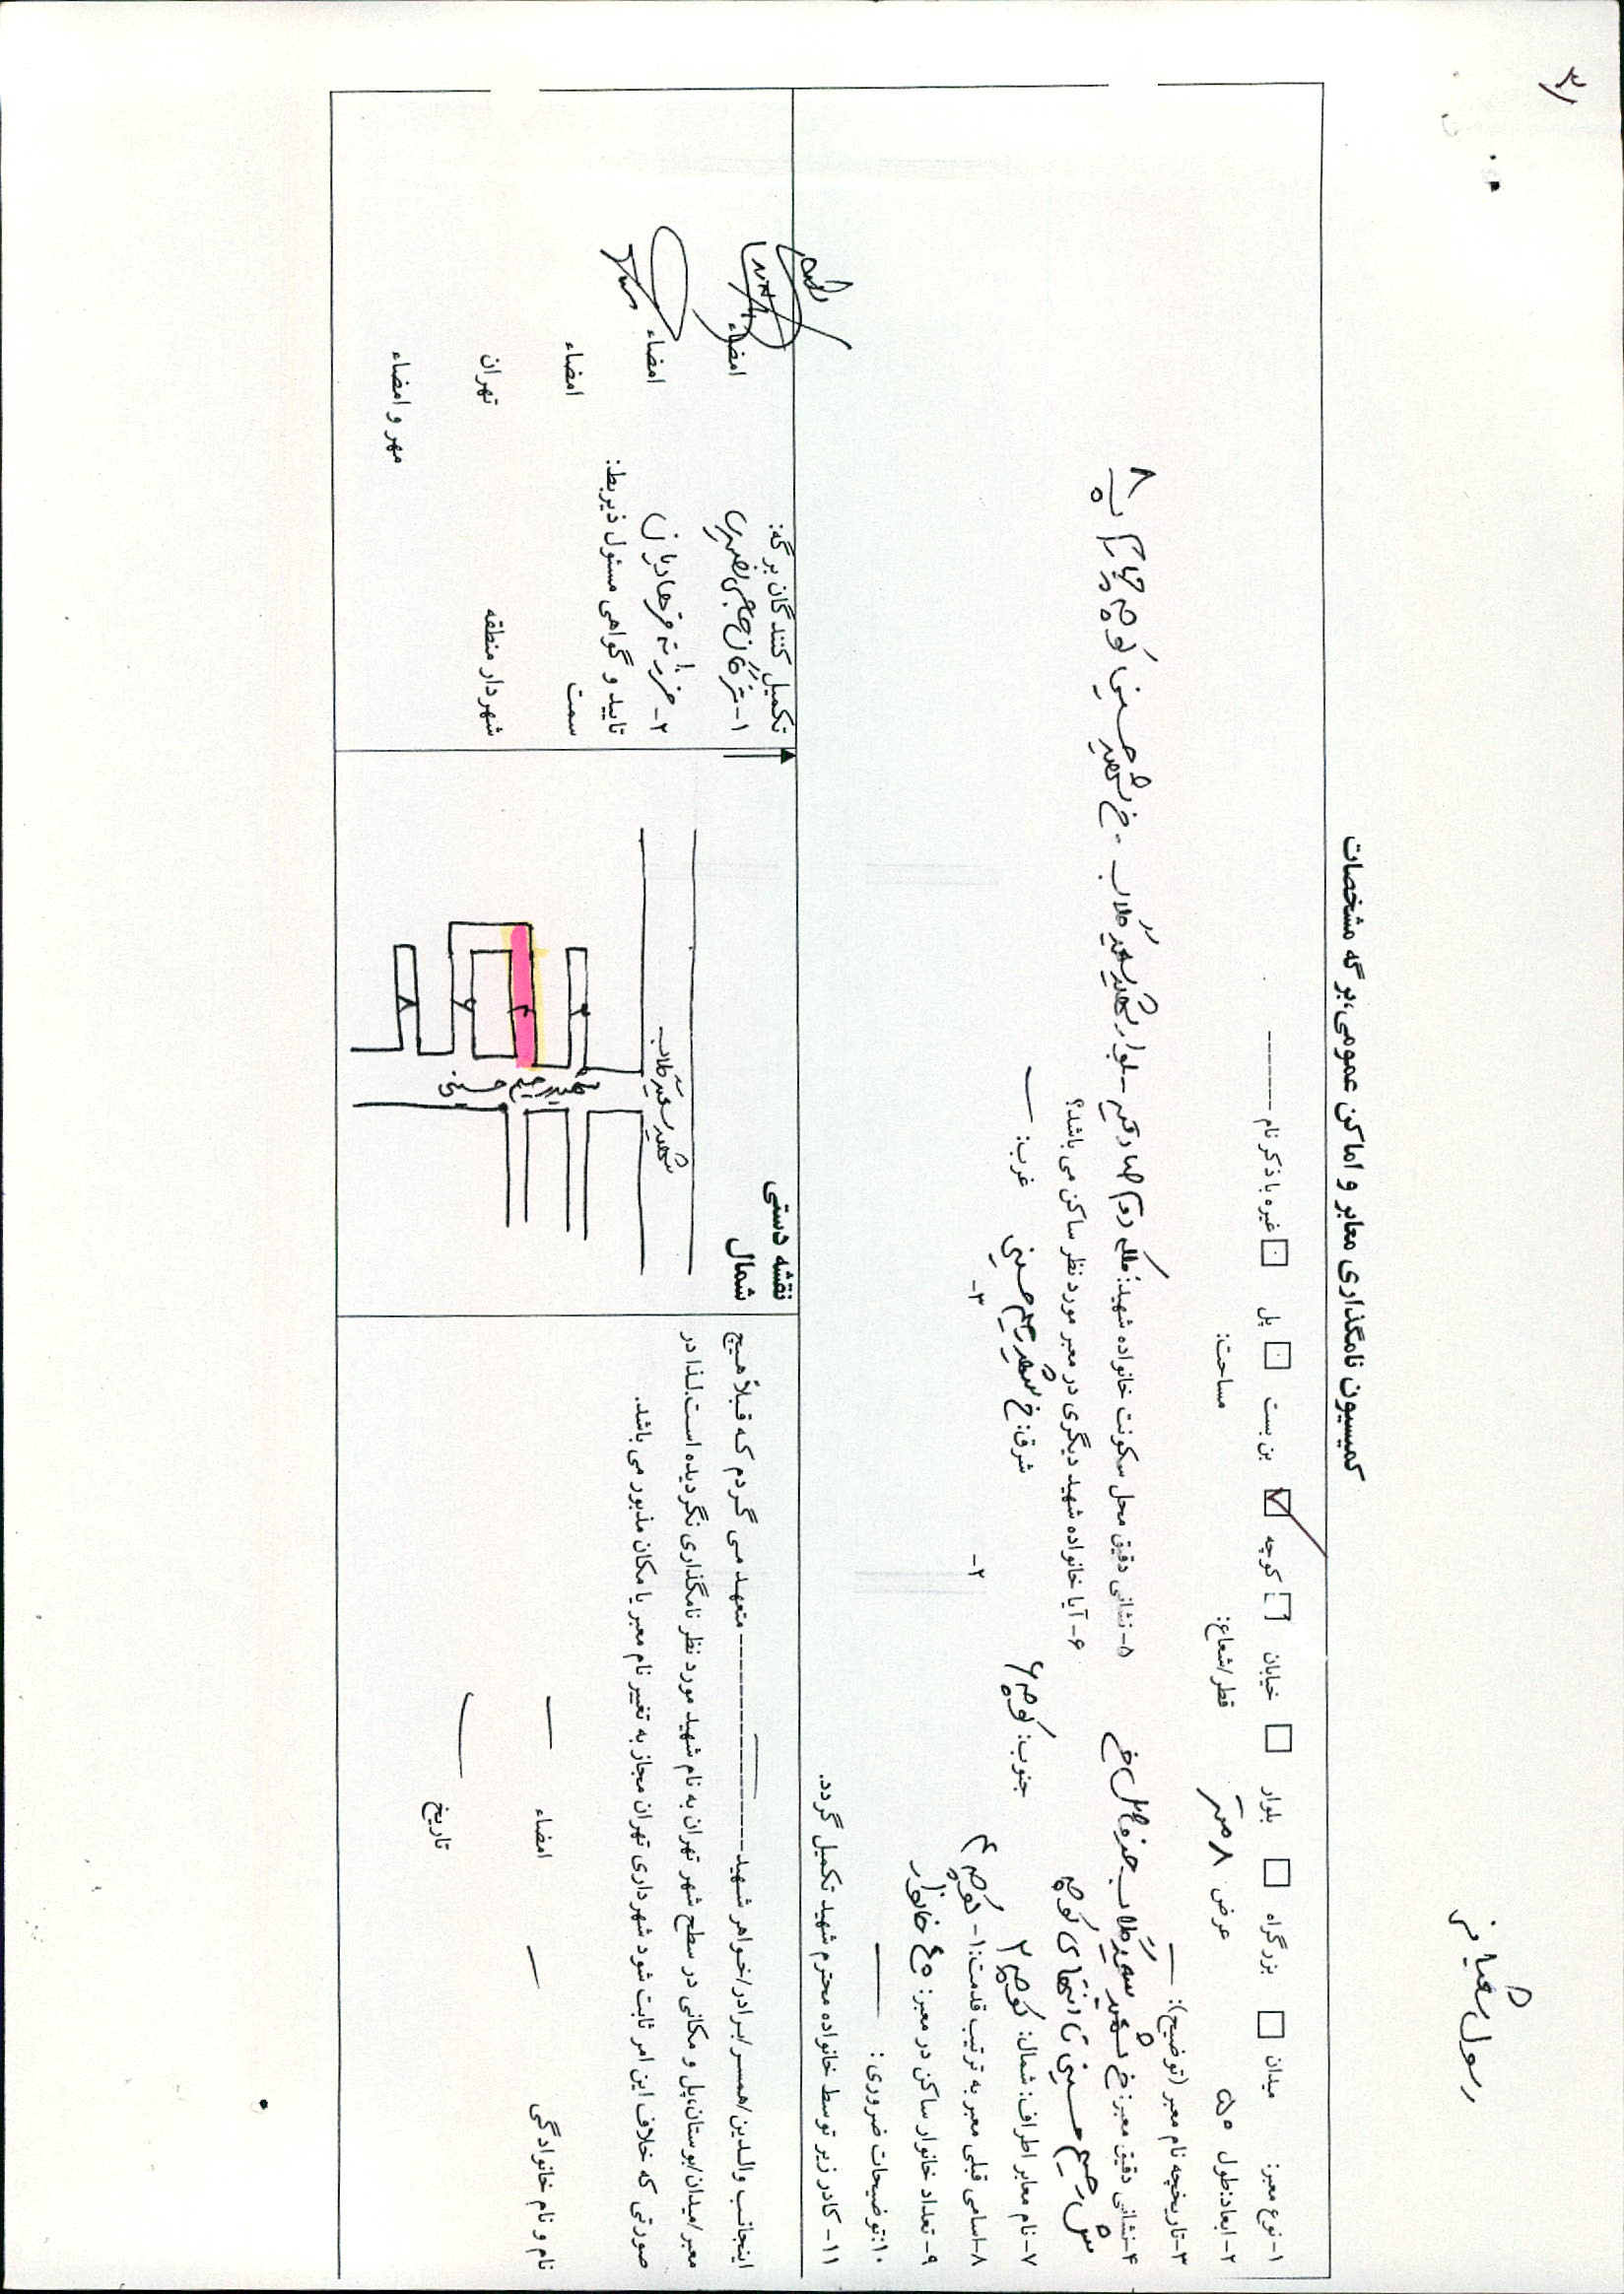 رسول شعبانی
کمیسیون نامگذاری معابر و اماکن عمومی،برگه مشخصات
۱- نوع معبر: میدان بزرگراه بلوار خیابان کوچه بن بست پل غیره با ذکر نام --------
۲- ابعاد:طول ۵۰ عرض ۸ متر قطر/شعاع: مساحت:
۳-تاریخچه نام معبر (توضیح): —
۴-نشانی دقیق معبر: خ شهید سعید طلاب حدفاصل خ
ش رحیم حسینی تا انتهای کوچه
۵-نشانی دقیق محل سکونت خانواده شهید: فلکه دوم صادقیه - بلوار شهید سعید طلاب - خ شهید حسینی کوچه چهارم پ ۸
۶- آیا خانواده شهید دیگری در معبر مورد نظر ساکن می باشد؟
۷- نام معابر اطراف: شمال: کوچه ۲ جنوب: کوچه ۶ شرق: خ شهید رحیم حسینی غرب: —
۸-اسامی قبلی معبر به ترتیب قدمت: ۱- کوچه ۴ ۲- ۳-
۹- تعداد خانوار ساکن در معبر: ۴۵ خانوار
۱۰:توضیحات ضروری : —
۱۱- کادر زیر توسط خانواده محترم شهید تکمیل گردد.
اینجانب والدین/همسر/برادر/خواهر شهید-------------------- متعهد می گردم که قبلاً هیچ
معبر/میدان/بوستان،پل و مکانی در سطح شهر تهران به نام شهید مورد نظر نامگذاری نگردیده است.لذا در
صورتی که خلاف این امر ثابت شود شهرداری تهران مجاز به تغییر نام معبر یا مکان مذبور می باشد.
نام و نام خانوادگی — امضاء —
تاریخ —
نقشه دستی
شمال
شهید سعید طلاب
شهید رحیم حسینی
۲
۴
۶
۸
تکمیل کنندگان برگه:
۱- مژگان حاجی نصیری امضاء
۲- فرزانه فرهادیان امضاء
تایید و گواهی مسئول ذیربط:
سمت امضاء
شهردار منطقه تهران
مهر و امضاء